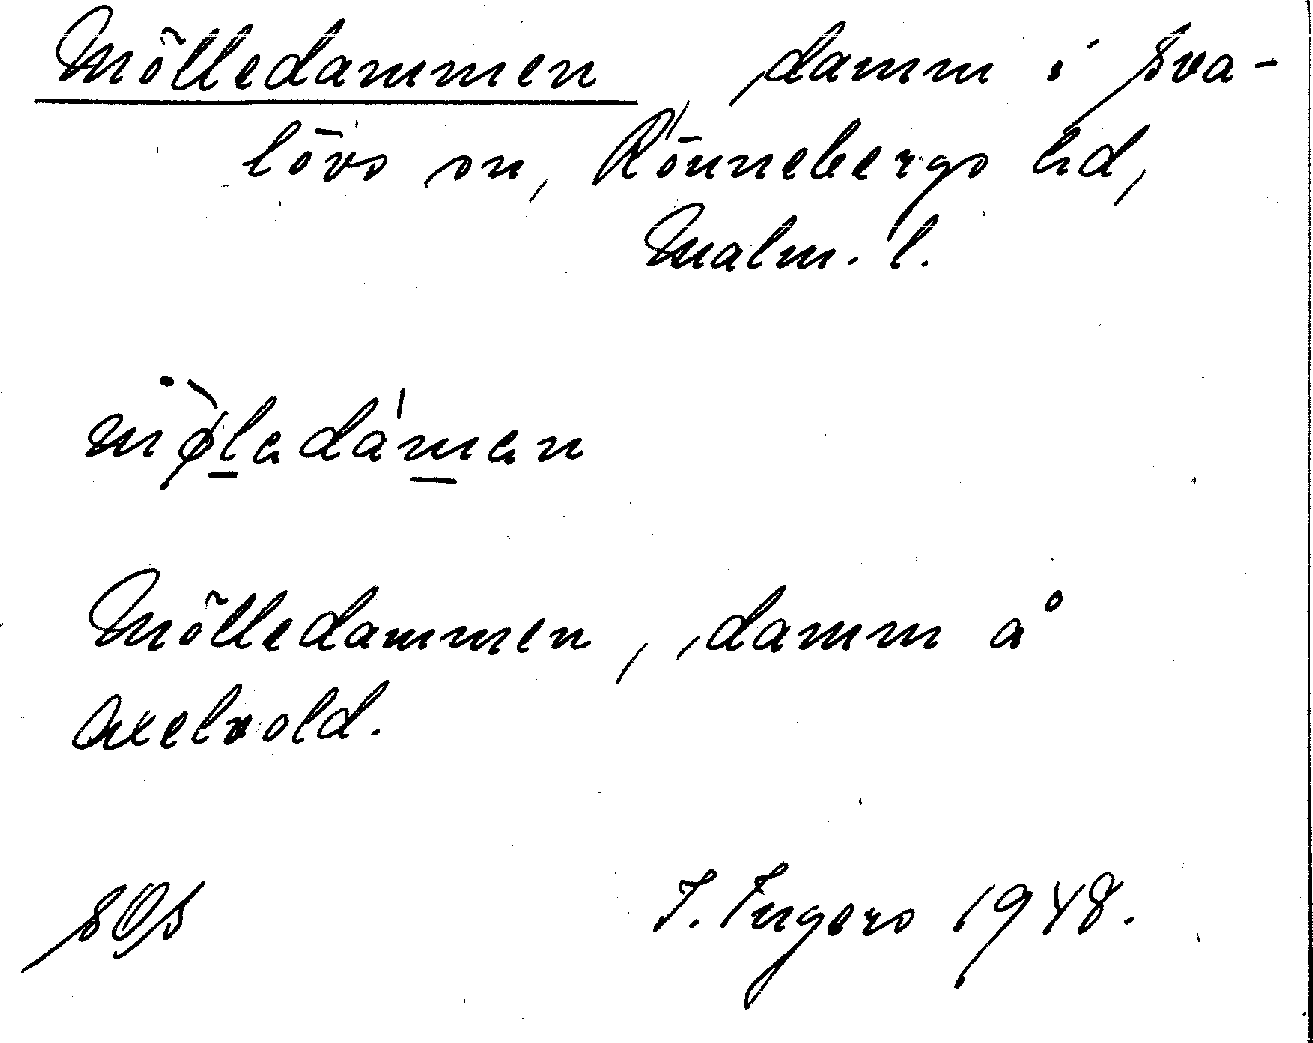 Mölledammen, damm i Sva-
lövs sn, Rönnebergs hd,
Malm. l.
mø̀ladáman
Mölledammen, damm å
Axelvold.
SOS I. Ingers 1948.